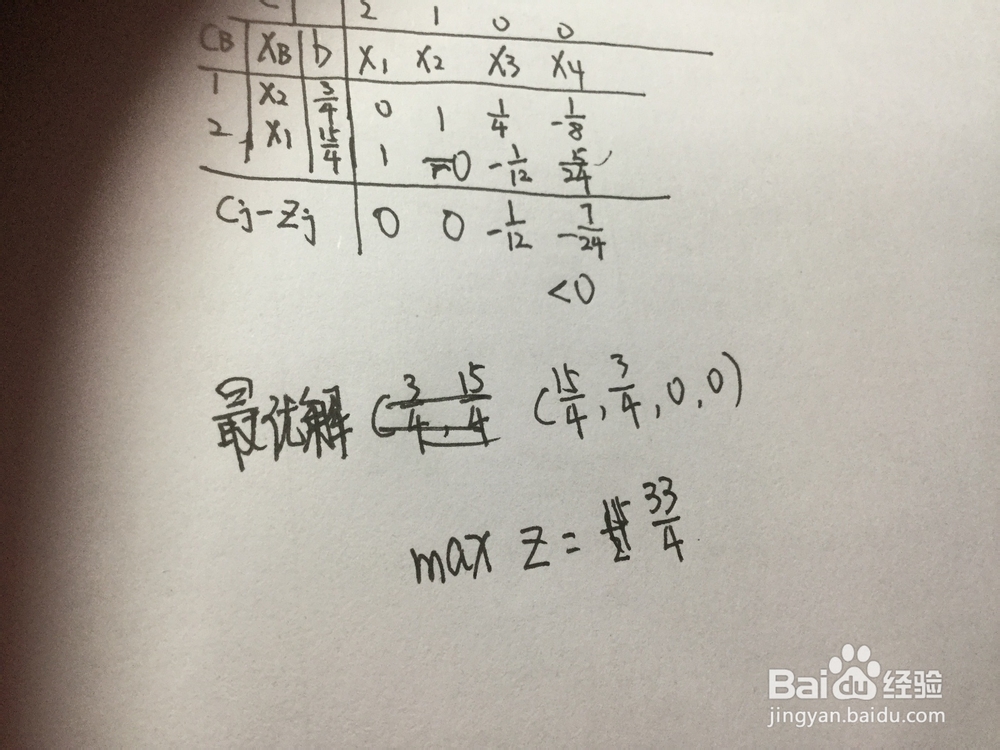 2 1 0 0
CB XB b X1 X2 X3 X4
1 X2 3/4 0 1 1/4 -1/8
2 X1 15/4 1 0 -1/12 5/24
Cj-Zj 0 0 -1/12 -7/24
<0
最优解 (3/4, 15/4 (15/4, 3/4, 0, 0)
max Z = 33/4
Baidu 经验
jingyan.baidu.com